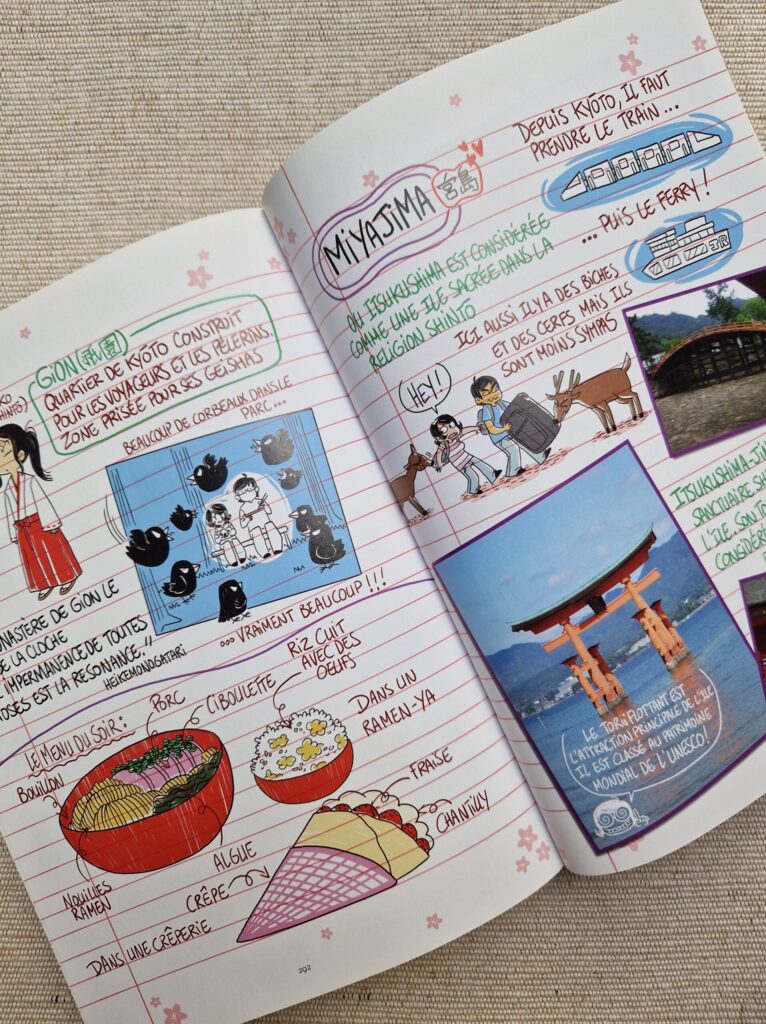 GiON (祇園)
QUARTIER DE KYÔTO CONSTRUIT
POUR LES VOYAGEURS ET LES PÈLERINS
ZONE PRISÉE POUR SES GEISHAS
BEAUCOUP DE CORBEAUX DANS LE
PARC...
...VRAIMENT BEAUCOUP !!!
DE GION LE
DE LA CLOCHE
IMPERMANENCE DE TOUTES
EST LA RÉSONANCE."
HEIKEMONOGATARI
LE MENU DU SOIR :
BOUILLON
PORC
CIBOULETTE
RIZ CUIT
AVEC DES
OEUFS
DANS UN
RAMEN-YA
NOUILLES
RAMEN
ALGUE
FRAISE
CHANTILLY
CRÊPE
DANS UNE CRÊPERIE
292
MiYAJiMA
宮島
DEPUIS KYÔTO, IL FAUT
PRENDRE LE TRAIN ...
... PUIS LE FERRY !
JR
OU ITSUKUSHIMA EST CONSIDÉRÉE
COMME UNE ILE SACRÉE DANS LA
RELIGION SHINTO
ICI AUSSI IL Y A DES BICHES
ET DES CERFS MAIS ILS
SONT MOINS SYMPAS
HEY !
SANCTUAIRE
L'ÎLE. SON
LE TORII FLOTTANT EST
L'ATTRACTION PRINCIPALE DE L'ILE
IL EST CLASSÉ AU PATRIMOINE
MONDIAL DE L'UNESCO !